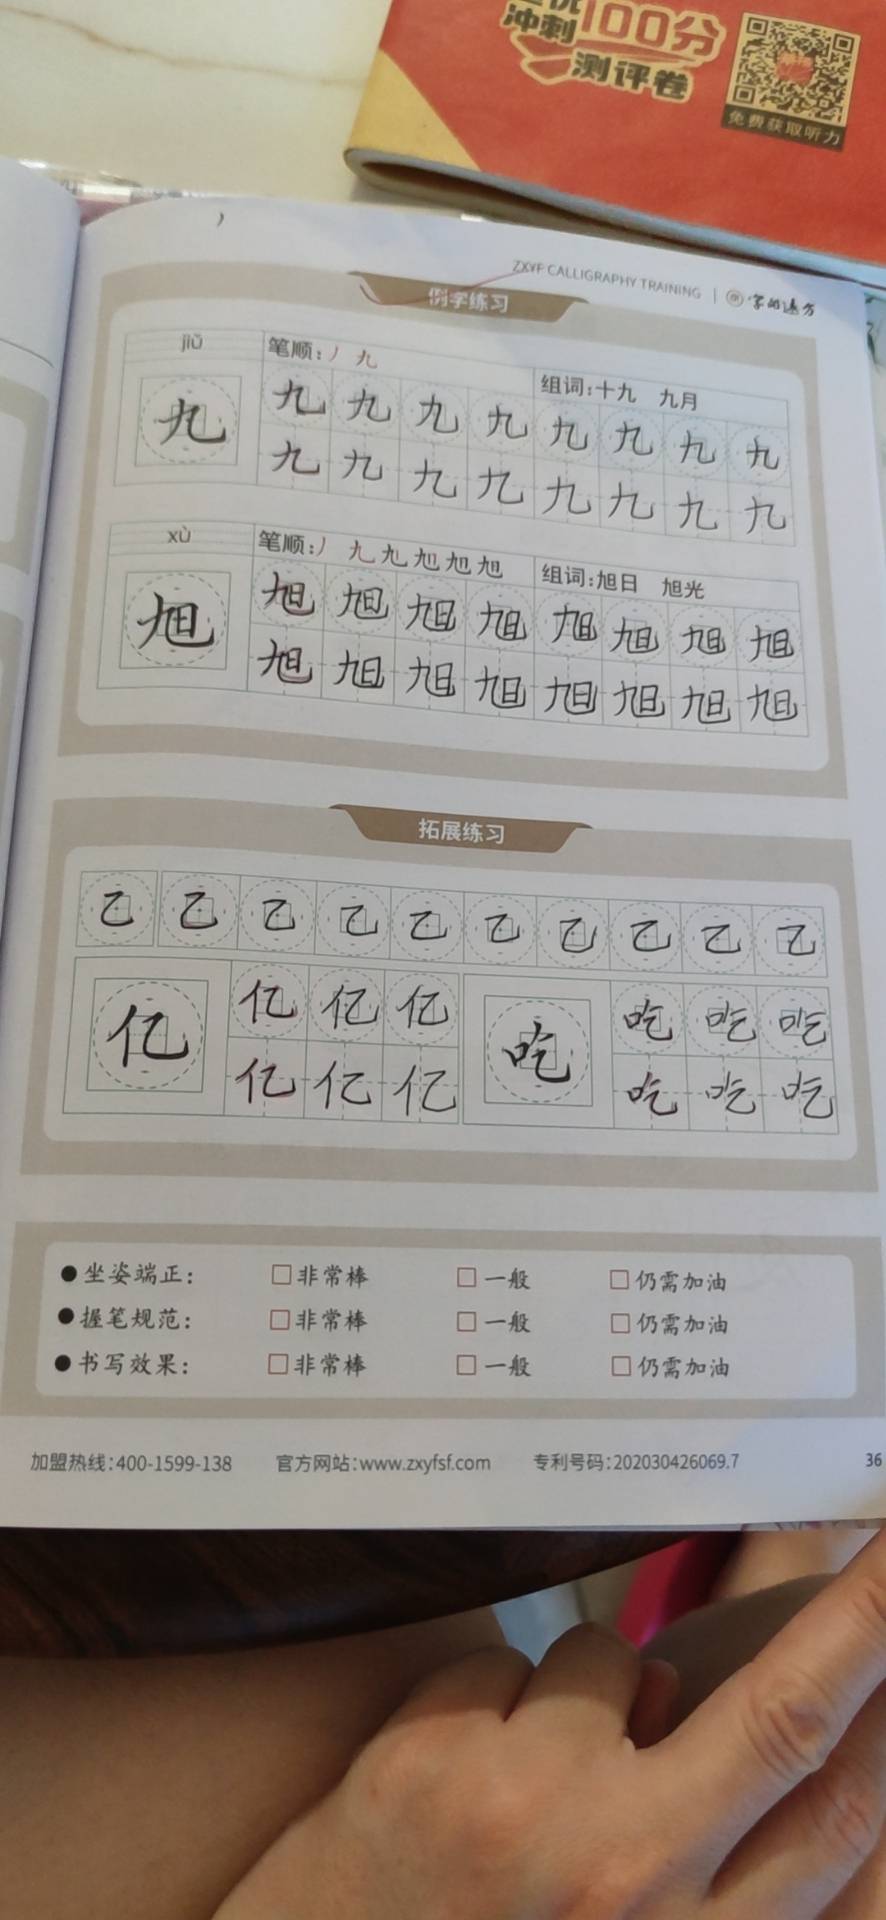 冲刺100分
测评卷
免费获取听力
ZXYF CALLIGRAPHY TRAINING | 字的远方
例字练习
jiǔ 笔顺:丿 九 组词:十九 九月
九 九 九 九 九 九 九 九 九
九 九 九 九 九 九 九 九
xù 笔顺:丿 九 九 旭 旭 旭 组词:旭日 旭光
旭 旭 旭 旭 旭 旭 旭 旭 旭
旭 旭 旭 旭 旭 旭 旭 旭
拓展练习
乙 乙 乙 乙 乙 乙 乙 乙 乙 乙
亿 亿 亿 亿 吃 吃 吃 吃
亿 亿 亿 吃 吃 吃
●坐姿端正: □非常棒 □一般 □仍需加油
●握笔规范: □非常棒 □一般 □仍需加油
●书写效果: □非常棒 □一般 □仍需加油
加盟热线:400-1599-138 官方网站:www.zxyfsf.com 专利号码:202030426069.7 36